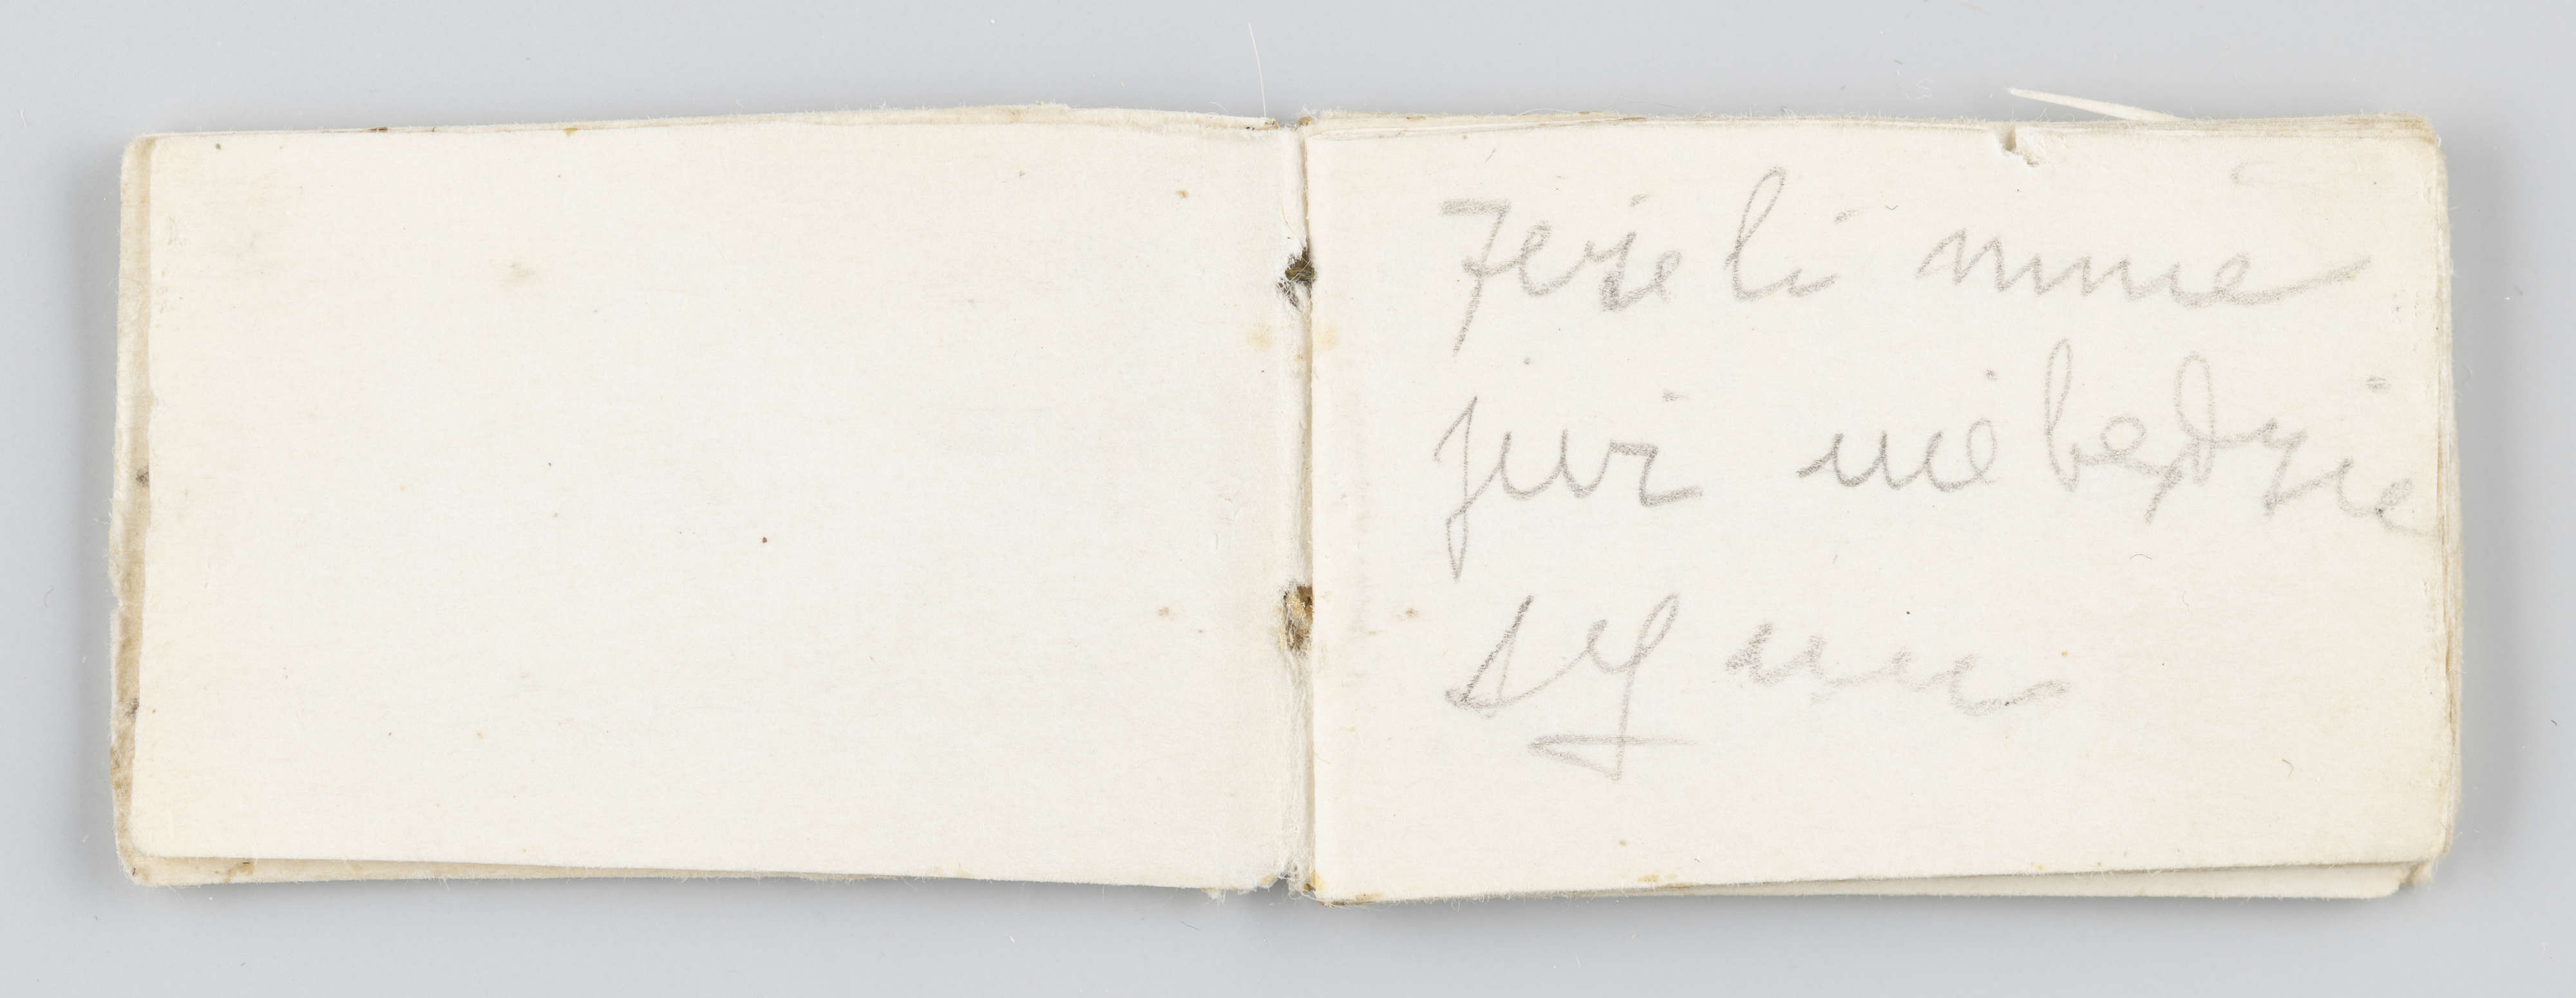 Jeżeli mnie
już nie będzie